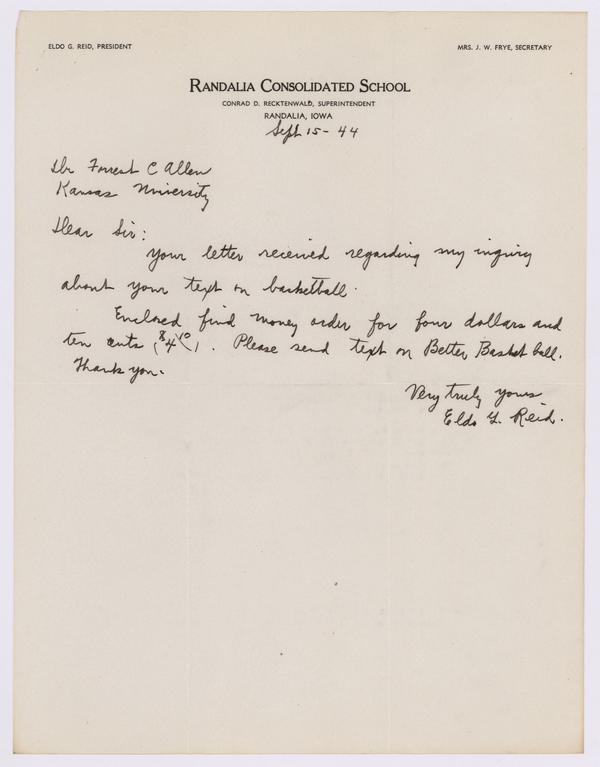 ELDO G. REID, PRESIDENT
MRS. J. W. FRYE, SECRETARY
RANDALIA CONSOLIDATED SCHOOL
CONRAD D. RECKTENWALD, SUPERINTENDENT
RANDALIA, IOWA
Sept 15 - 44
Dr Forrest C Allen
Kansas University
Dear Sir:
Your letter received regarding my inquiry
about your text on basketball.
Enclosed find money order for four dollars and
ten cents ($4.10). Please send text on Better Basket ball.
Thank you.
Very truly yours
Eldo G. Reid.